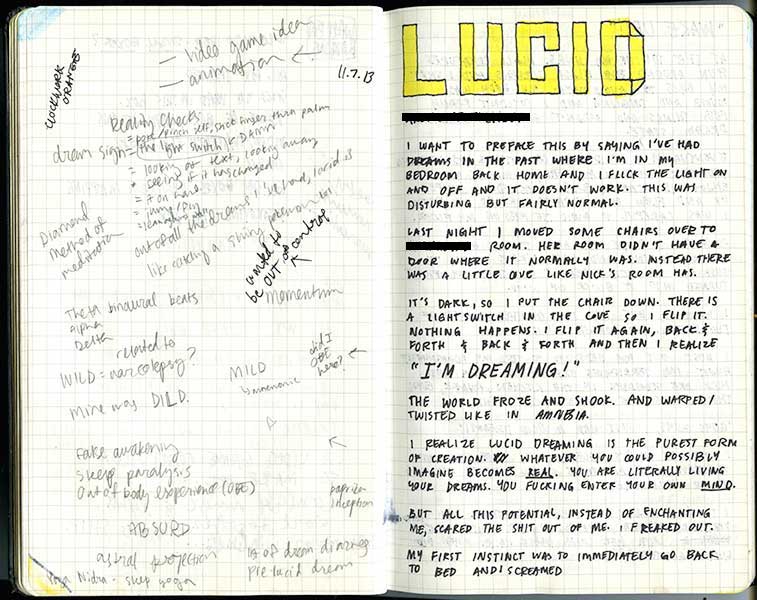 CLOCKWORK
ORANGE
- video game idea
- animation ←
11.7.13
Reality Checks
= poke/pinch self, stick finger thru palm
dream sign = the light switch * DAMN
= looking at text, looking away
* seeing if it has changed
= jump/fly
Diamond
method of
meditation
out of all the dreams I've had, lucid is
like catching a shiny pokemon
wanted to
be OUT of control
momentum
Theta binaural beats
alpha
Delta
related to
WILD = narcolepsy?
MILD
mnemonic
did I
OBE
here?
Mine was DILD.
Fake awakening
Sleep paralysis
Out of body experience (OBE)
paprika
inception
ABSURD
astral projection
Yoga Nidra - sleep yoga
of dream diaries
Pre lucid dream
LUCID
I WANT TO PREFACE THIS BY SAYING I'VE HAD
DREAMS IN THE PAST WHERE I'M IN MY
BEDROOM BACK HOME AND I FLICK THE LIGHT ON
AND OFF AND IT DOESN'T WORK. THIS WAS
DISTURBING BUT FAIRLY NORMAL.
LAST NIGHT I MOVED SOME CHAIRS OVER TO
ROOM. HER ROOM DIDN'T HAVE A
DOOR WHERE IT NORMALLY WAS. INSTEAD THERE
WAS A LITTLE COVE LIKE NICK'S ROOM HAS.
IT'S DARK, SO I PUT THE CHAIR DOWN. THERE IS
A LIGHTSWITCH IN THE COVE SO I FLIP IT.
NOTHING HAPPENS. I FLIP IT AGAIN, BACK &
FORTH & BACK & FORTH AND THEN I REALIZE
"I'M DREAMING!"
THE WORLD FROZE AND SHOOK. AND WARPED/
TWISTED LIKE IN AMNESIA.
I REALIZE LUCID DREAMING IS THE PUREST FORM
OF CREATION. WHATEVER YOU COULD POSSIBLY
IMAGINE BECOMES REAL. YOU ARE LITERALLY LIVING
YOUR DREAMS. YOU FUCKING ENTER YOUR OWN MIND.
BUT ALL THIS POTENTIAL, INSTEAD OF ENCHANTING
ME, SCARED THE SHIT OUT OF ME. I FREAKED OUT.
MY FIRST INSTINCT WAS TO IMMEDIATELY GO BACK
TO BED AND I SCREAMED